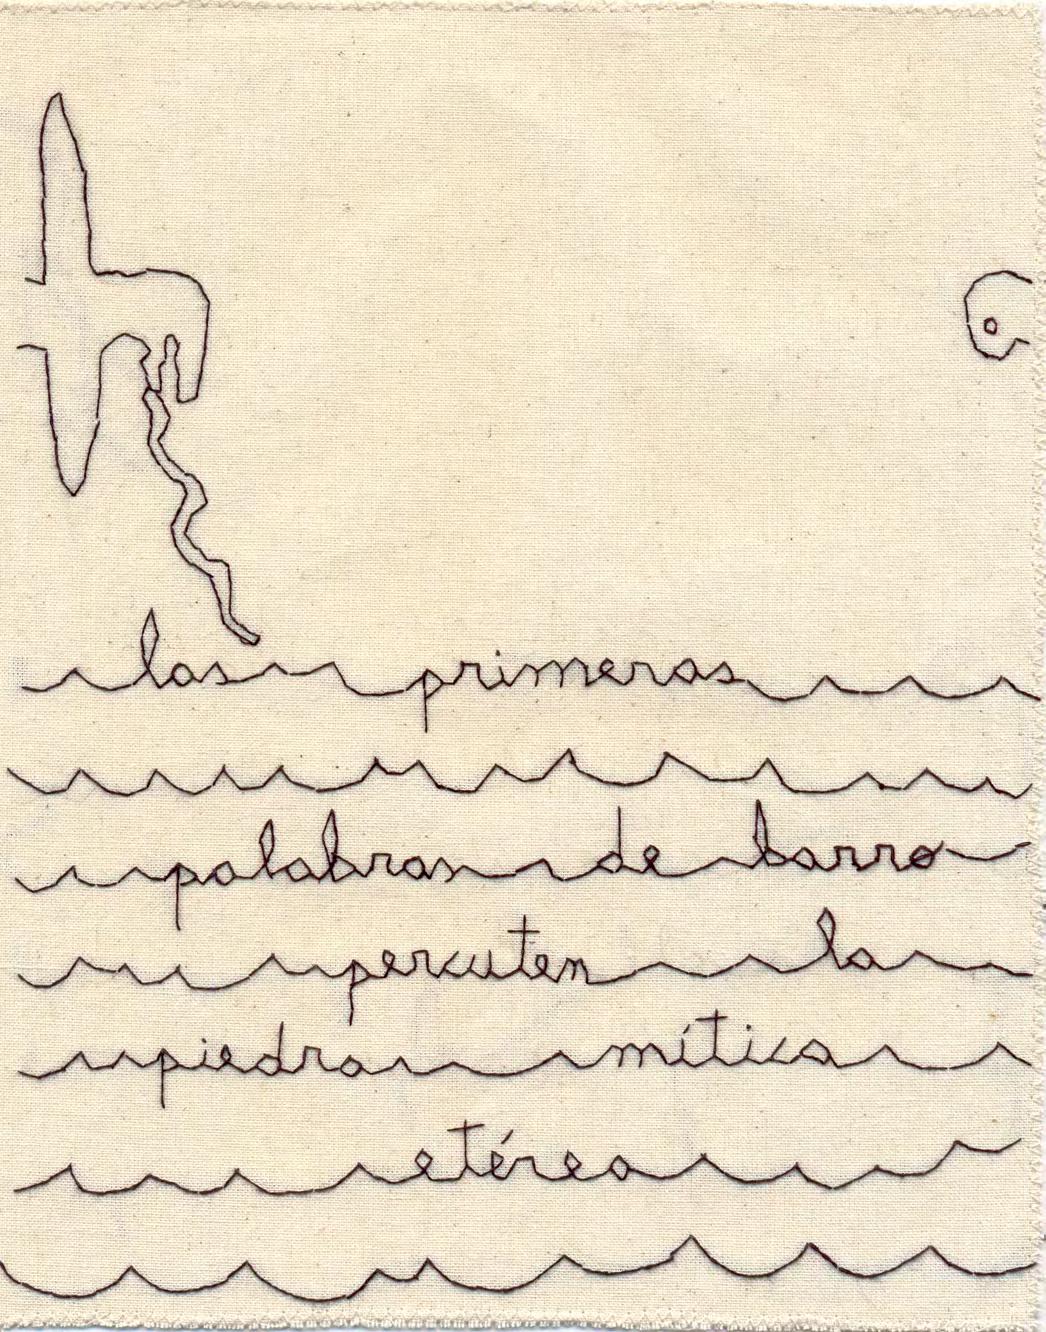 las primeras
palabras de barro
percuten la
piedra mítica
etérea